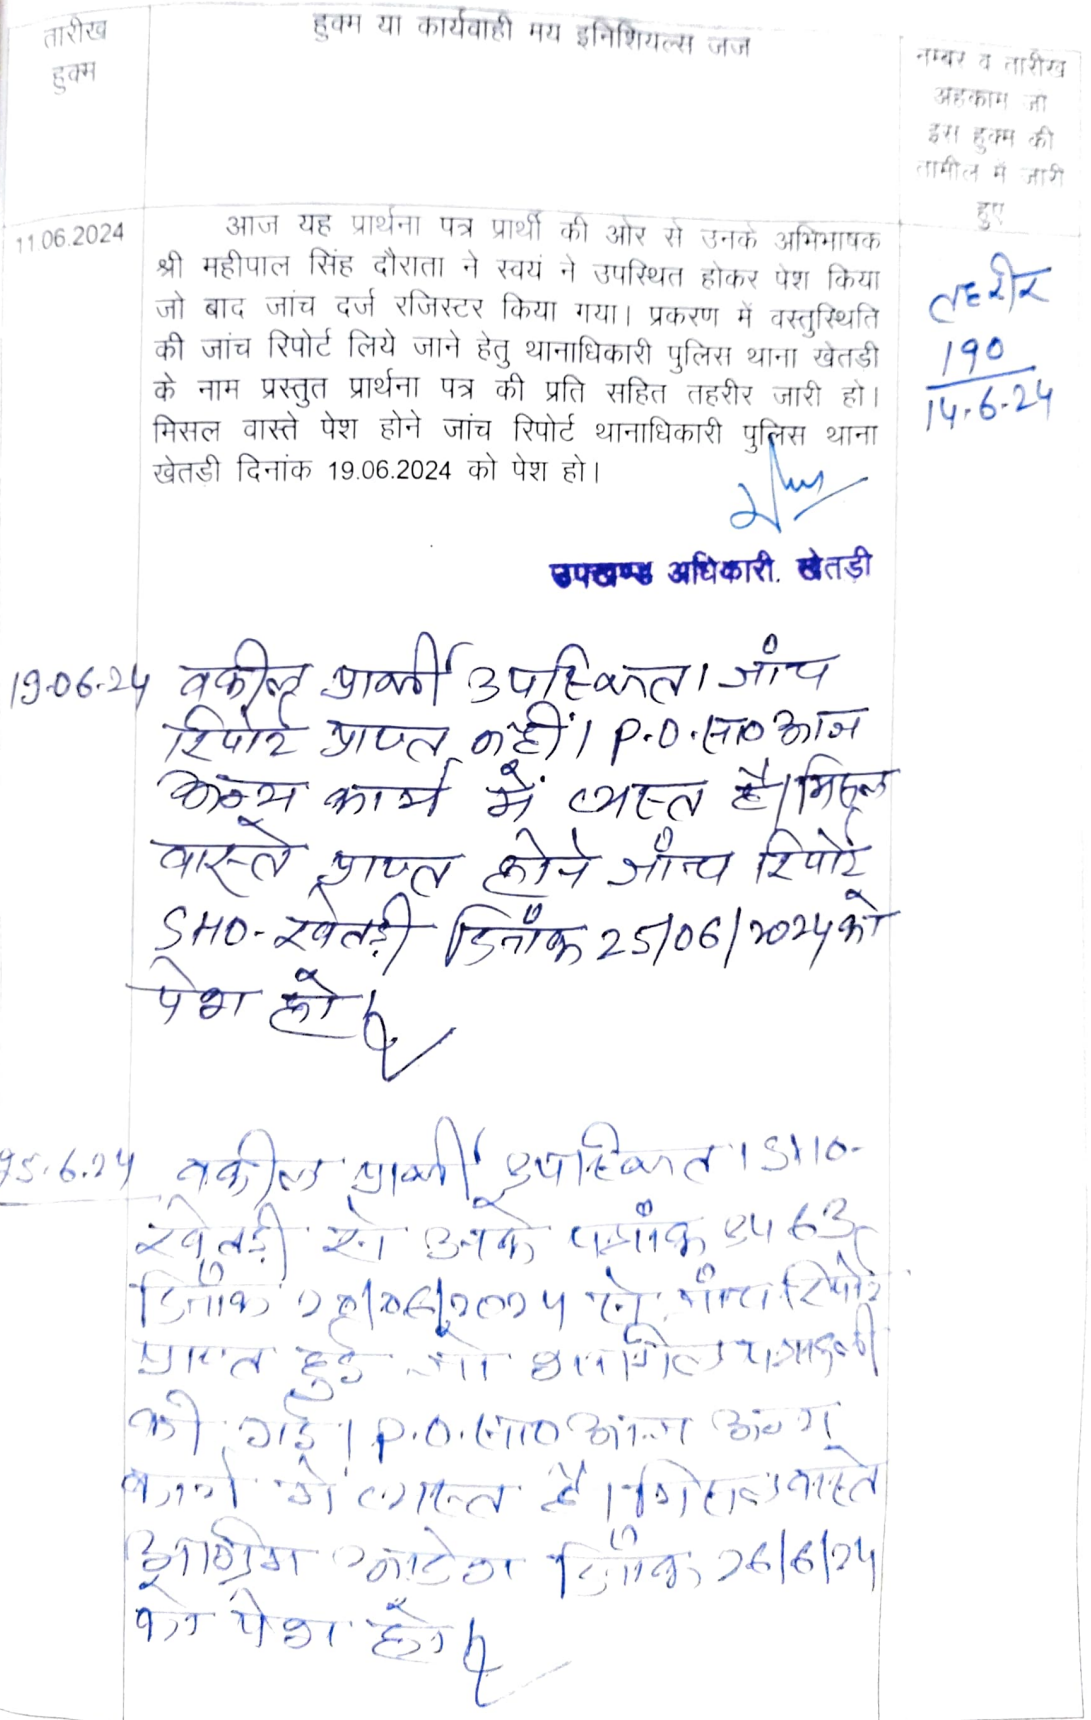 तारीख
हुक्म
हुक्म या कार्यवाही मय इनिशियल्स जज
नम्बर व तारीख
अहकाम जो
इस हुक्म की
तामील में जारी
हुए
11.06.2024
आज यह प्रार्थना पत्र प्रार्थी की ओर से उनके अभिभाषक
श्री महीपाल सिंह दौराता ने स्वयं ने उपस्थित होकर पेश किया
जो बाद जांच दर्ज रजिस्टर किया गया। प्रकरण में वस्तुस्थिति
की जांच रिपोर्ट लिये जाने हेतु थानाधिकारी पुलिस थाना खेतडी
के नाम प्रस्तुत प्रार्थना पत्र की प्रति सहित तहरीर जारी हो।
मिसल वास्ते पेश होने जांच रिपोर्ट थानाधिकारी पुलिस थाना
खेतडी दिनांक 19.06.2024 को पेश हो।
तहरीर
190
14.6.24
उपखण्ड अधिकारी. खेतड़ी
19.06.24 वकील प्रार्थी उपस्थित। जाँच
रिपोर्ट प्राप्त नहीं। P.O.सा० आज
अन्य कार्य में व्यस्त है। मिसल
वास्ते प्राप्त होने जाँच रिपोर्ट
SHO-खेतड़ी दिनाँक 25/06/2024 को
पेश हो।
25.6.24 वकील प्रार्थी उपस्थित। SHO-
खेतड़ी से उनके पत्रांक 5463
दिनाँक /06/2024 से जाँच रिपोर्ट
प्राप्त हुई जो शामिल पत्रावली
की गई। P.O.सा० आज अन्य
कार्य में व्यस्त है। मिसल वास्ते
अग्रिम आदेश दिनाँक 26/6/24
को पेश हो।